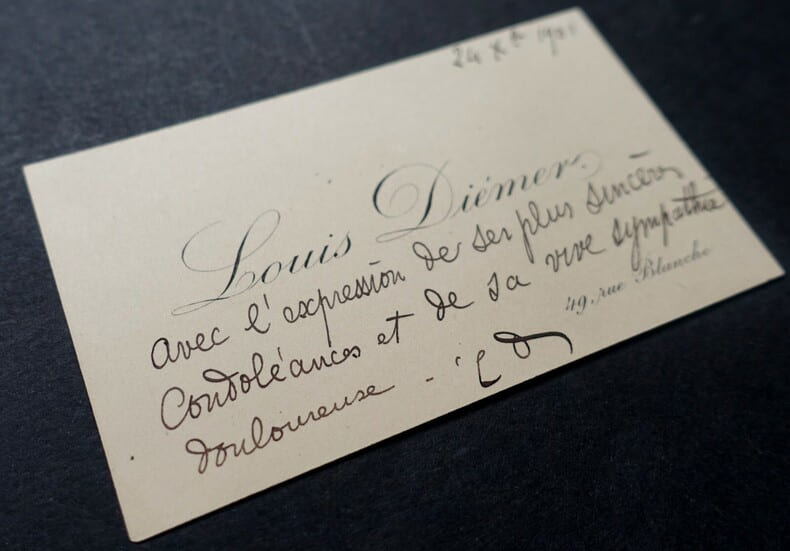 24 Xbre
Louis Diémer
avec l'expression de ses plus sincères
Condoléances et de sa vive sympathie
49, rue Blanche
douloureuse - LD